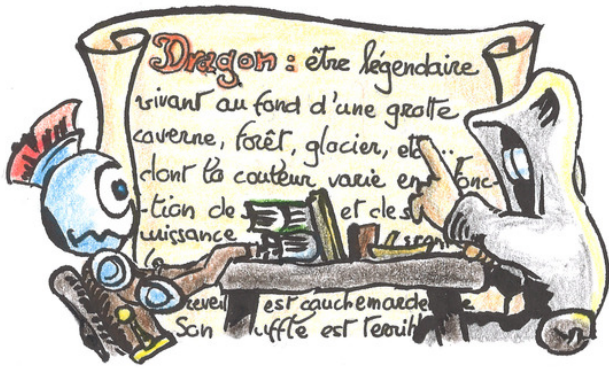 Dragon : être légendaire
vivant au fond d'une grotte
caverne, forêt, glacier, etc...
dont la couleur varie en fonc-
-tion de et de
uissance
reveil est cauchemarde
Son uffle est terrib